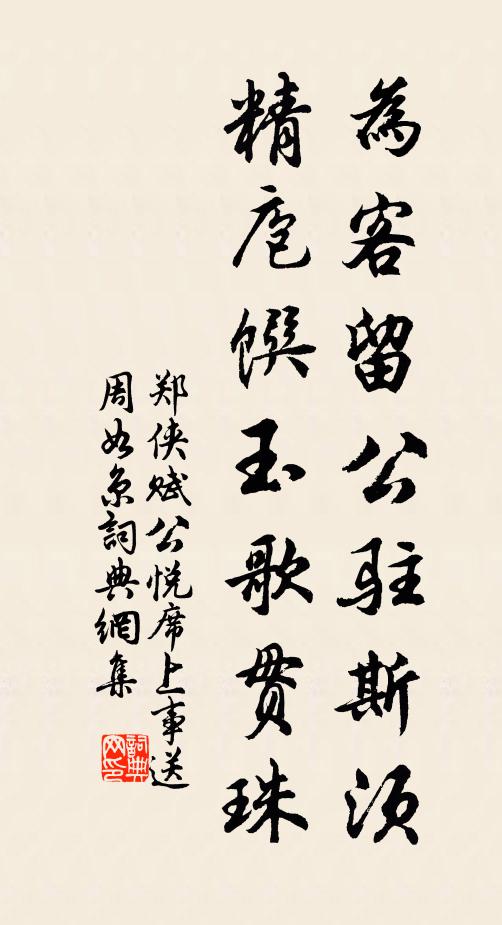 為客留公駐斯須
精庖饌玉歌貫珠
郑侠赋公悦席上事送
周如京詞典網集
詞典網印